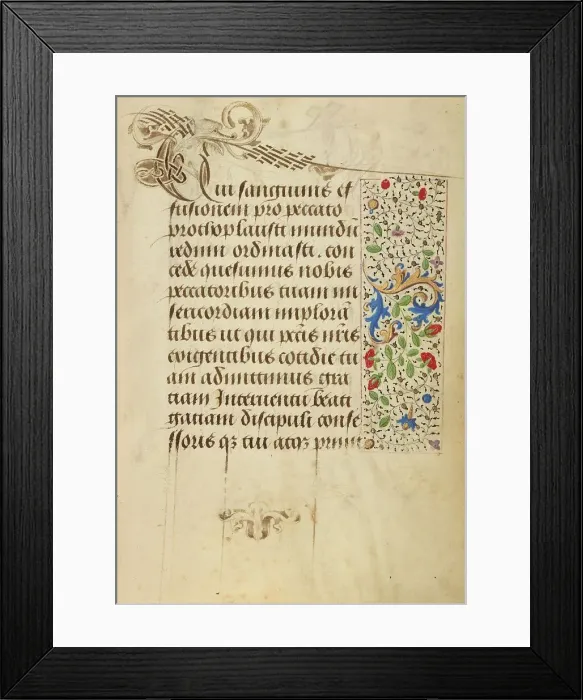 Tui sanguinis ef
fusionem pro peccato
prothoplausti mundū
redimi ordinasti . con
cede quesumus nobis
peccatoribus tuam mi
sericordiam implorā
tibus ut qui pctīs nrīs
exigentibus cotidie tu
am admittimus gra
tiam Interuentu beati
gatiani discipuli confe
ssoris qꝫ tui atqꝫ primi